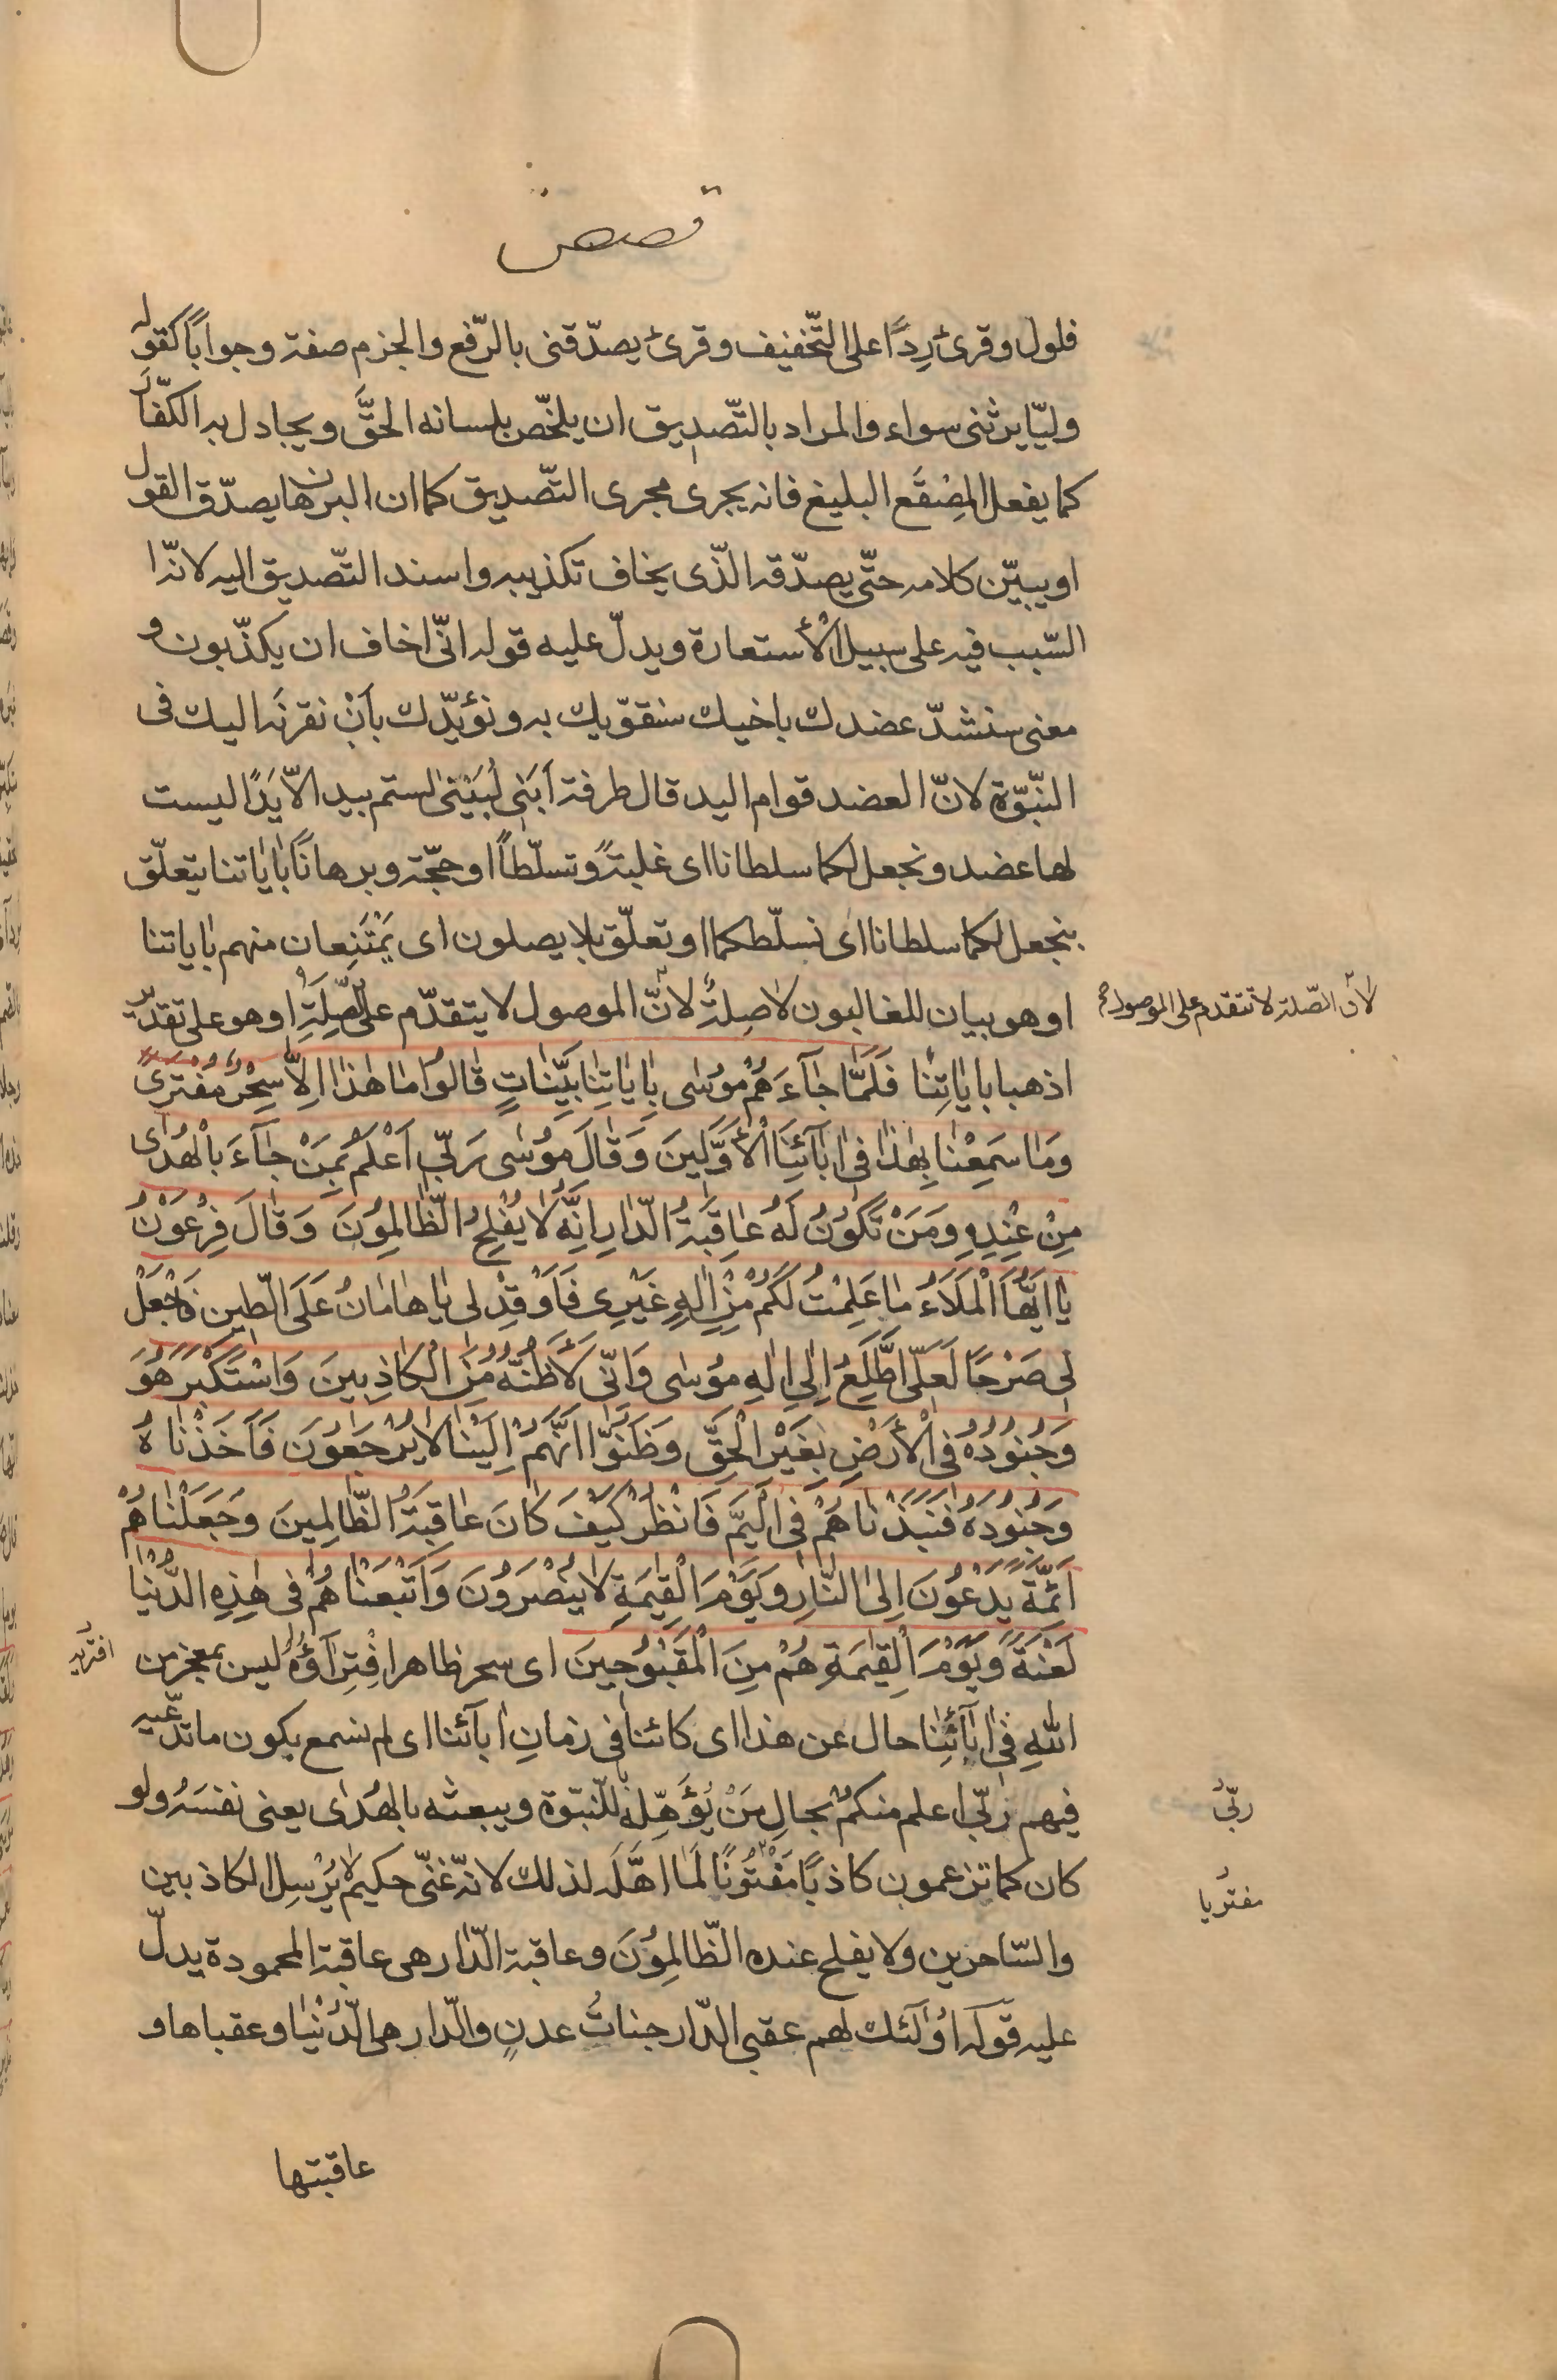 قصص
فلول وقرئ رِدًا على التّخفيف وقرئ يصدّقنى بالرّفع والجزم صفة وجوابًا كقوله
وليّا يرثنى سواء والمراد بالتّصديق ان يلخّص بلسانه الحقَّ ويجادل به الكفّار
كما يفعل المِصْقَع البليغ فانه يجرى مجرى التّصديق كما ان البرهان يصدّق القول
او يبيّن كلامه حتّى يصدّقه الّذى يخاف تكذيبه واسند التّصديق اليه لانّه ا
السّبب فيه على سبيل الأستعارة ويدلّ عليه قوله انّى اخاف ان يكذّبون و
معنى سنشدّ عضدك باخيك سنقوّيك به ونؤيّدك بأنْ نقرنَه اليك فى
النبّوّة لانّ العضد قوام اليد قال طرفة اَبَنى لُبَيْنىٰ لستم بيد الّا يَدًا ليست
لها عضد ونجعل لكما سلطانا اى غلبةً وتسلّطاً او حجّة وبرهانًا بآياتنا يتعلّق
بنجعل لكما سلطانا اى نسلّطكما او تعلّق بلا يصلون اى يَمْتَنِعان منهم بآياتنا
او هو بيان للغالبون لا صِلةٌ لانّ الموصول لا يتقدّم على الصِّلَةِ او هو على تقدير
لانّ الصّلة لا تتقدم على الموصول
اذهبا بآياتِنا فَلَمّا جٰآءَهُمْ مُوسٰى بِآياتِنا بَيِّنٰاتٍ قٰالُوا مٰا هٰذا اِلّا سِحْرٌ مُفْتَرىً
وَمٰا سَمِعْنٰا بِهٰذا فى آبآئِنَا الْأَوَّلينَ وَقٰالَ مُوسٰى رَبّى اَعْلَمُ بِمَنْ جٰآءَ بِالْهُدٰى
مِنْ عِنْدِهِ وَمَنْ تَكُونُ لَهُ عٰاقِبَةُ الدّارِ اِنَّهُ لٰا يُفْلِحُ الظّالِمُونَ وَقٰالَ فِرْعَوْنُ
يٰا اَيُّهَا الْمَلَاءُ مٰا عَلِمْتُ لَكُمْ مِنْ اِلٰهٍ غَيْرِى فَاَوْقِدْ لى يٰا هٰامٰانُ عَلَى الطّينِ فَاجْعَلْ
لى صَرْحًا لَعَلّى اَطَّلِعُ اِلٰى اِلٰهِ مُوسٰى وَاِنّى لَأَظُنُّهُ مِنَ الْكٰاذِبينَ وَاسْتَكْبَرَ هُوَ
وَجُنُودُهُ فى الْأَرْضِ بِغَيْرِ الْحَقِّ وَظَنُّوا اَنَّهُمْ اِلَيْنٰا لٰا يُرْجَعُونَ فَاَخَذْنٰاهُ
وَجُنُودَهُ فَنَبَذْنٰاهُمْ فى الْيَمِّ فَانْظُرْ كَيْفَ كٰانَ عٰاقِبَةُ الظّالِمينَ وَجَعَلْنٰاهُمْ
اَئِمَّةً يَدْعُونَ اِلىٰ النّارِ وَيَوْمَ الْقِيٰمَةِ لٰا يُنْصَرُونَ وَاَتْبَعْنٰاهُمْ فى هٰذِهِ الدُّنْيٰا
لَعْنَةً وَيَوْمَ الْقِيٰمَةِ هُمْ مِنَ الْمَقْبُوحينَ اى سحر ظاهر افْتِرآؤُهُ ليس بمعجز من
اللّٰهِ فى آبآئِنٰا حال عن هذا اى كائنا فى زمانِ آبآئنا اى لم نسمع بكون ما تدّعيه
فيهم رَبّى اعلم منكم بحالِ مَنْ يُؤَهِّلهُ للنّبوّة ويبعثه بالهُدٰى يعنى نفسَهُ ولو
ربّى
كان كما تزعمون كاذبًا مَفْتُونًا لَمٰا اهَّلَه لذلك لانّه غنّى حكيم لٰا يُرْسِل الكاذبين
مفتريا
والسّاحرين ولا يفلح عنده الظّالِمُونَ وعاقبة الدّار هى عاقبة المحمودة يدلّ
عليه قوله اُولٰئك لهم عقبى الدّار جناتُ عدنٍ والدّار هى الدُّنْيٰا وعقباها و
عاقبتها